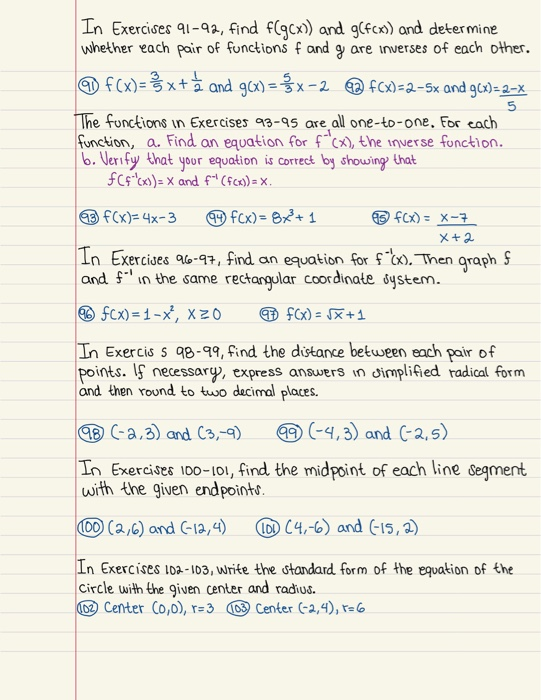 In Exercises 91-92, find f(g(x)) and g(f(x)) and determine
whether each pair of functions f and g are inverses of each other.
(91) f(x)=3/5 x+1/2 and g(x)=5/3 x-2 (92) f(x)=2-5x and g(x)=2-x/5
The functions in Exercises 93-95 are all one-to-one. For each
function, a. Find an equation for f⁻¹(x), the inverse function.
b. Verify that your equation is correct by showing that
f(f⁻¹(x))=x and f⁻¹(f(x))=x.
(93) f(x)=4x-3 (94) f(x)=8x³+1 (95) f(x)=x-7/x+2
In Exercises 96-97, find an equation for f⁻¹(x). Then graph f
and f⁻¹ in the same rectangular coordinate system.
(96) f(x)=1-x², x≥0 (97) f(x)=√x+1
In Exercis s 98-99, find the distance between each pair of
points. If necessary, express answers in simplified radical form
and then round to two decimal places.
(98) (-2,3) and (3,-9) (99) (-4,3) and (-2,5)
In Exercises 100-101, find the midpoint of each line segment
with the given endpoints.
(100) (2,6) and (-12,4) (101) (4,-6) and (-15,2)
In Exercises 102-103, write the standard form of the equation of the
circle with the given center and radius.
(102) Center (0,0), r=3 (103) Center (-2,4), r=6